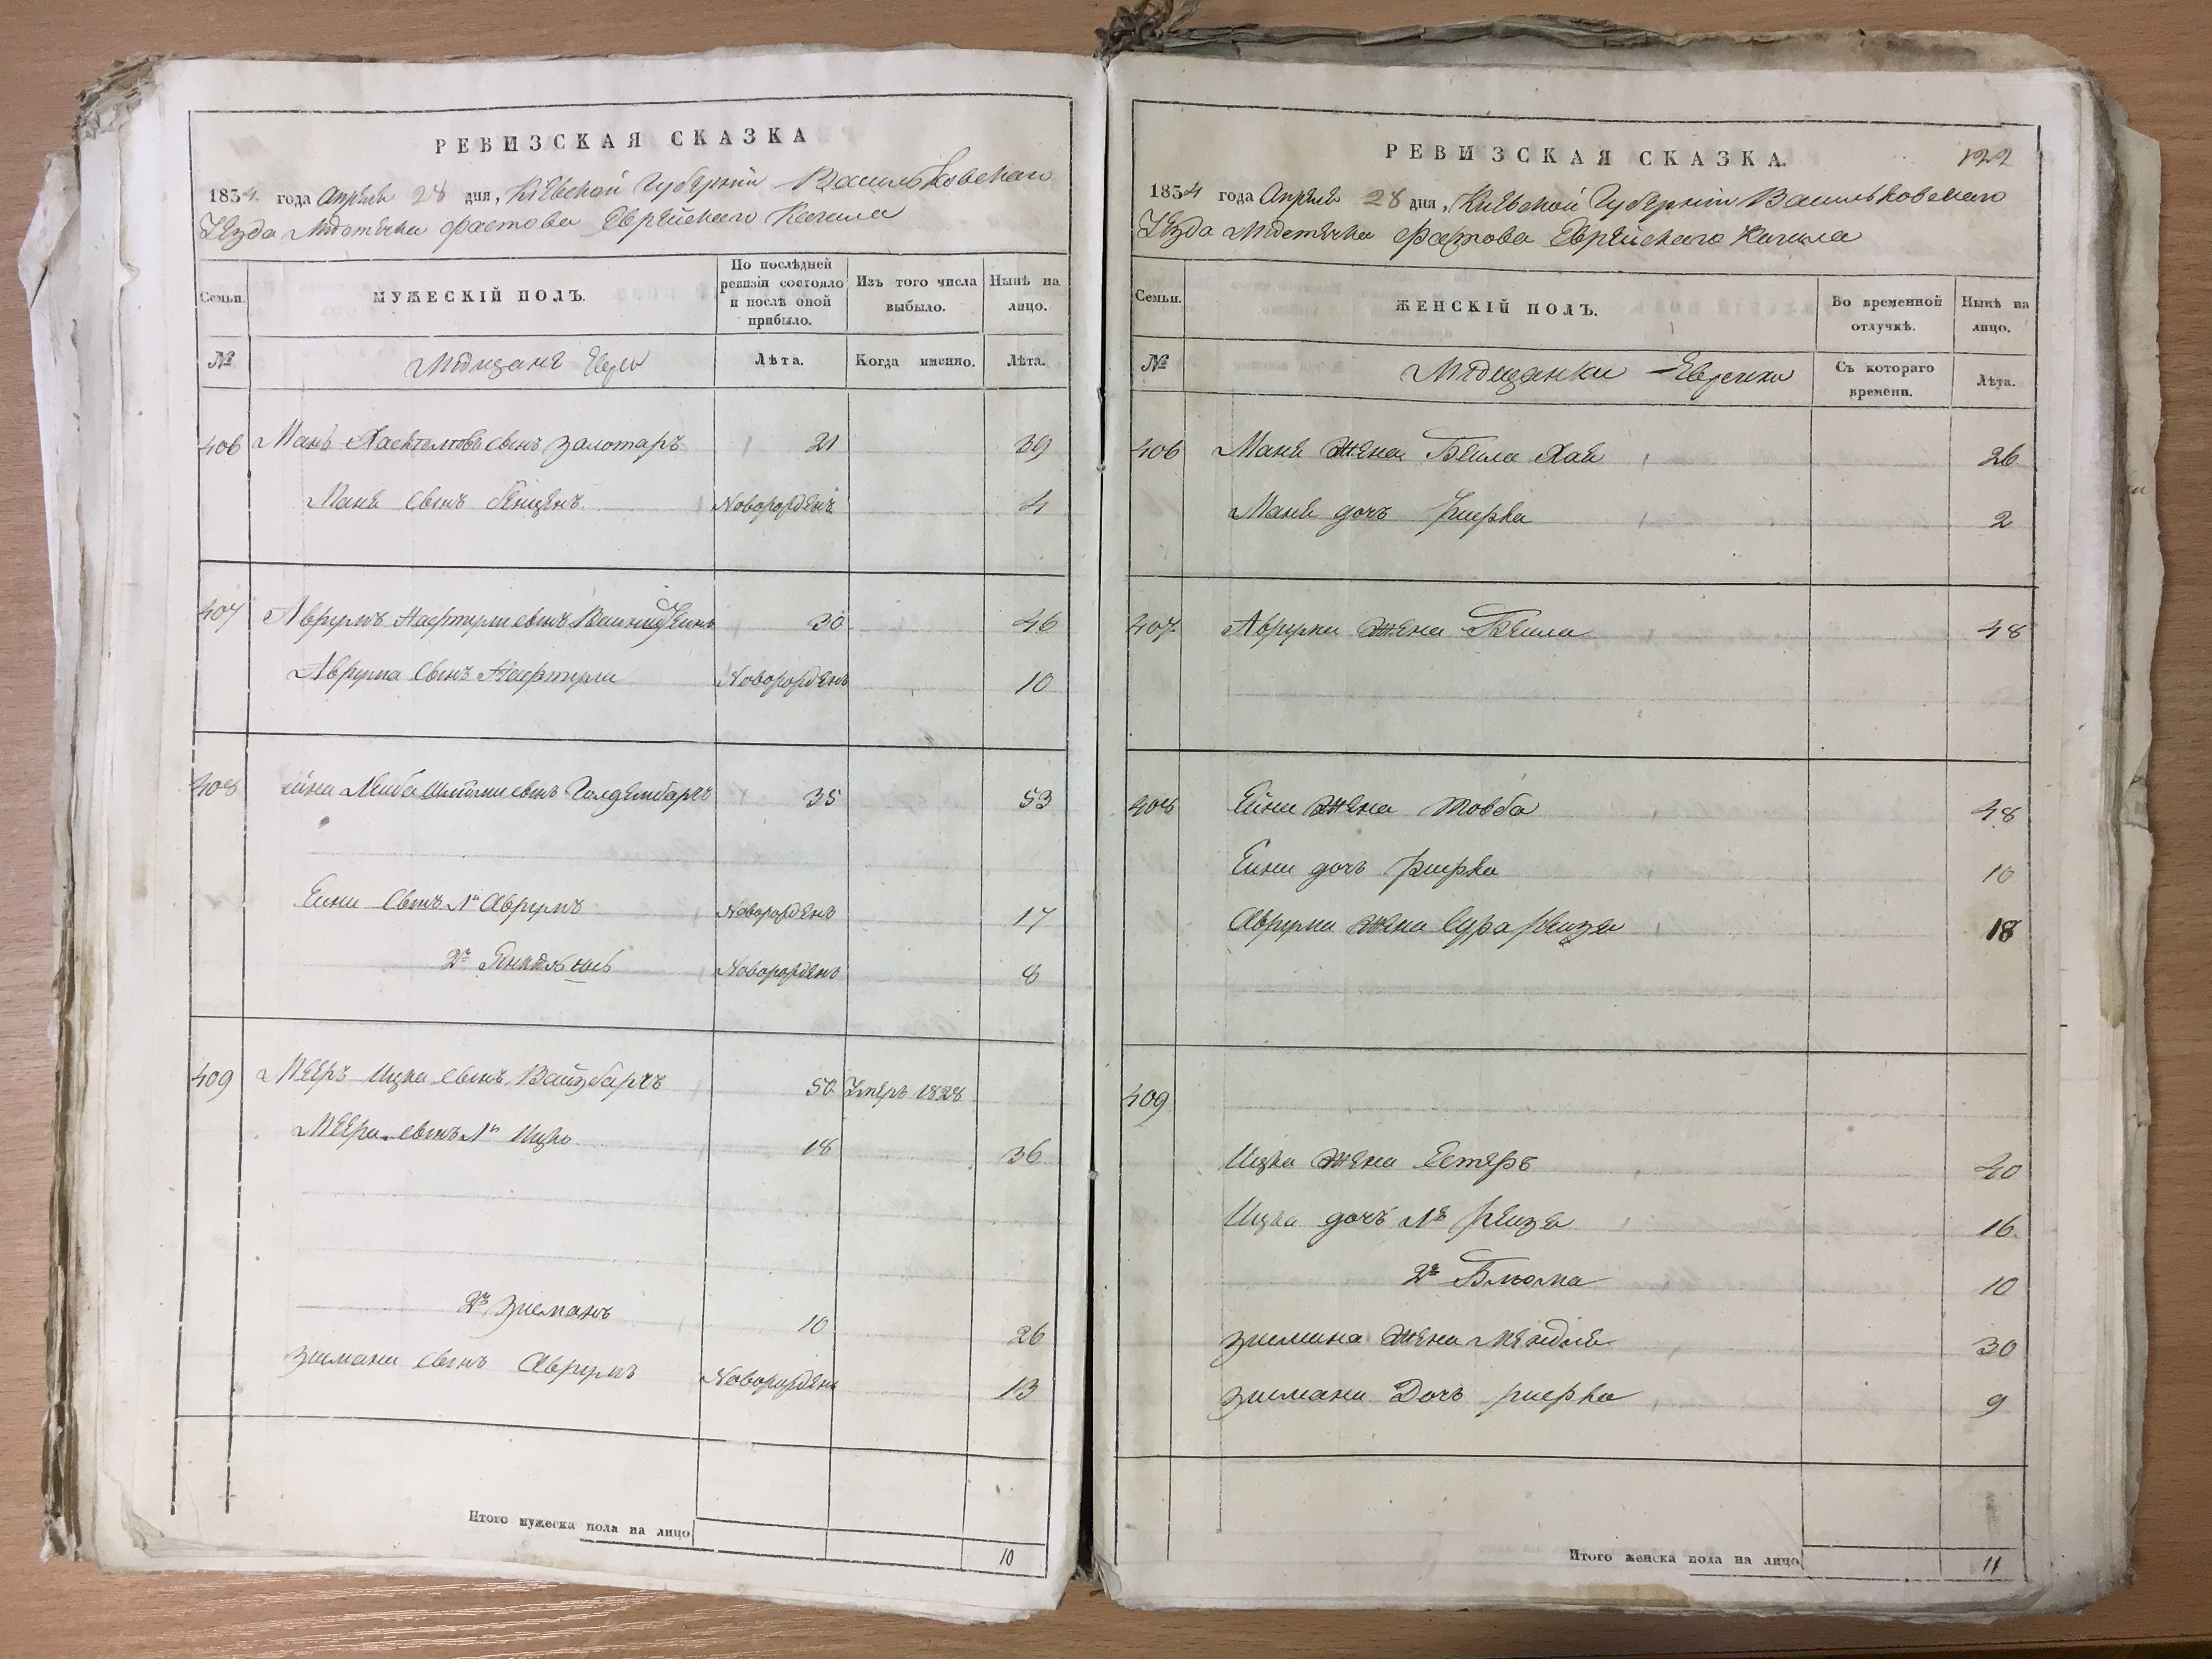 РЕВИЗСКАЯ СКАЗКА
1834 года Апреля 28 дня, Кіевской Губерніи Васильковскаго
Уѣзда Мѣстечка Фастова Еврейскаго Кагала
Семьи.
МУЖЕСКІЙ ПОЛЪ.
По послѣдней ревизіи состояло и послѣ оной прибыло.
Изъ того числа выбыло.
Нынѣ на лицо.
№
Мѣщане Евреи
Лѣта.
Когда именно.
Лѣта.
406 Мань сынъ Залотаръ 21 39
Маня сынъ Новорожденъ 4
407 Аврумъ Нафтули сынъ 30 46
Аврума сынъ Нафтули Новорожденъ 10
408 Лейба сынъ Голденбаргъ 35 53
Ейни сынъ 1й Аврумъ Новорожденъ 17
2й Новорожденъ 8
409 Мееръ Ицка сынъ Вайзбаргъ 50 Умеръ 1828
Меера сынъ 1й Ицко 18 36
2й Зисманъ 10 26
Зисмана сынъ Аврумъ Новорожденъ 13
Итого мужеска пола на лицо 10
РЕВИЗСКАЯ СКАЗКА.
122
1834 года Апреля 28 дня, Кіевской Губерніи Васильковскаго
Уѣзда Мѣстечка Фастова Еврейскаго Кагала
Семьи.
ЖЕНСКІЙ ПОЛЪ.
Во временной отлучкѣ.
Нынѣ на лицо.
№
Мѣщанки Еврейки
Съ котораго времени.
Лѣта.
406 Маня жена Бейла Хая 26
Маня дочь Ривка 2
407 Аврума жена Бейла 48
408 Ейни жена Товба 48
Ейни дочь Ривка 10
Аврума жена Сура Рейзя 18
409
Ицка жена Естеръ 40
Ицка дочь 1я Рейзя 16
2я Блюма 10
Зисмана жена Мендля 30
Зисмана Дочь Ривка 9
Итого женска пола на лицо 11